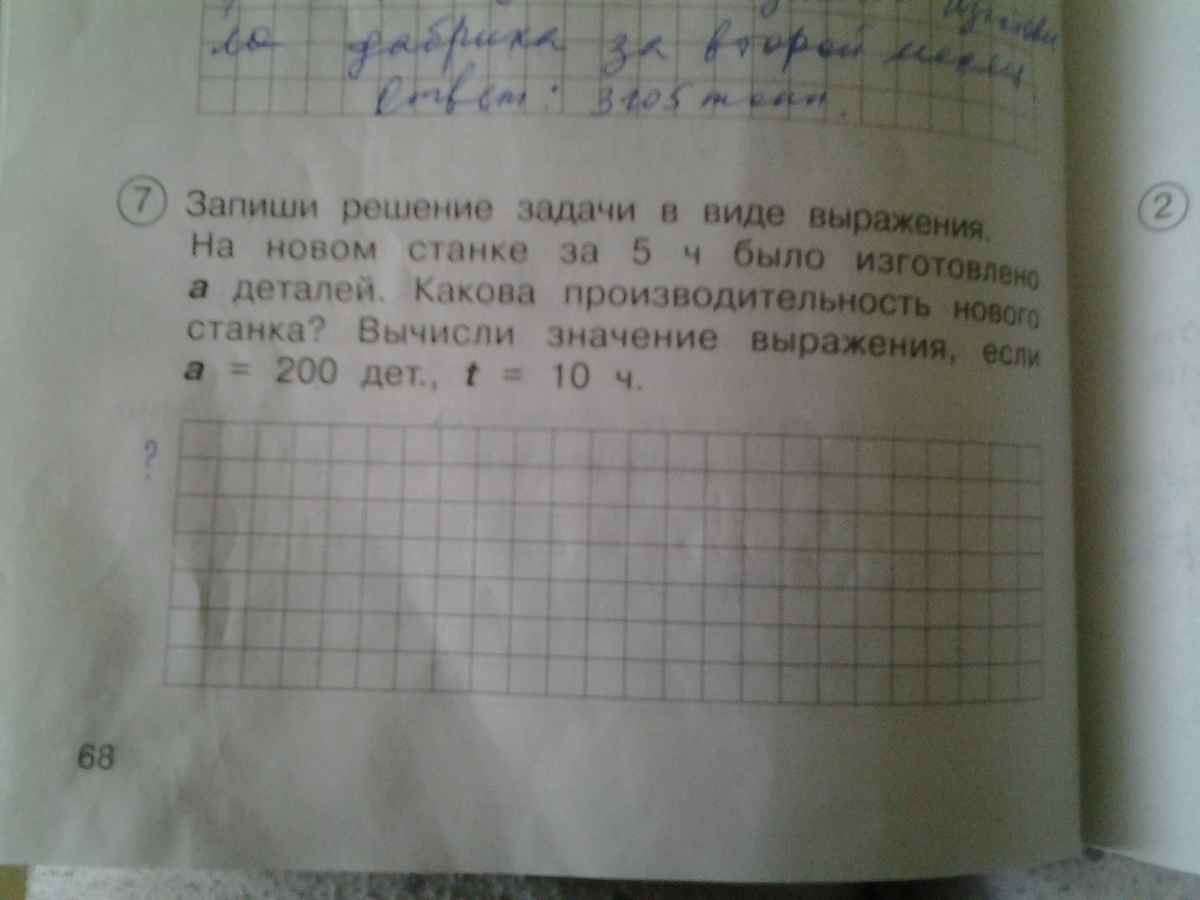 ло фабрика за второй месяц
Ответ: 3105 тонн.
7 Запиши решение задачи в виде выражения.
На новом станке за 5 ч было изготовлено
а деталей. Какова производительность нового
станка? Вычисли значение выражения, если
а = 200 дет., t = 10 ч.
?
68
2